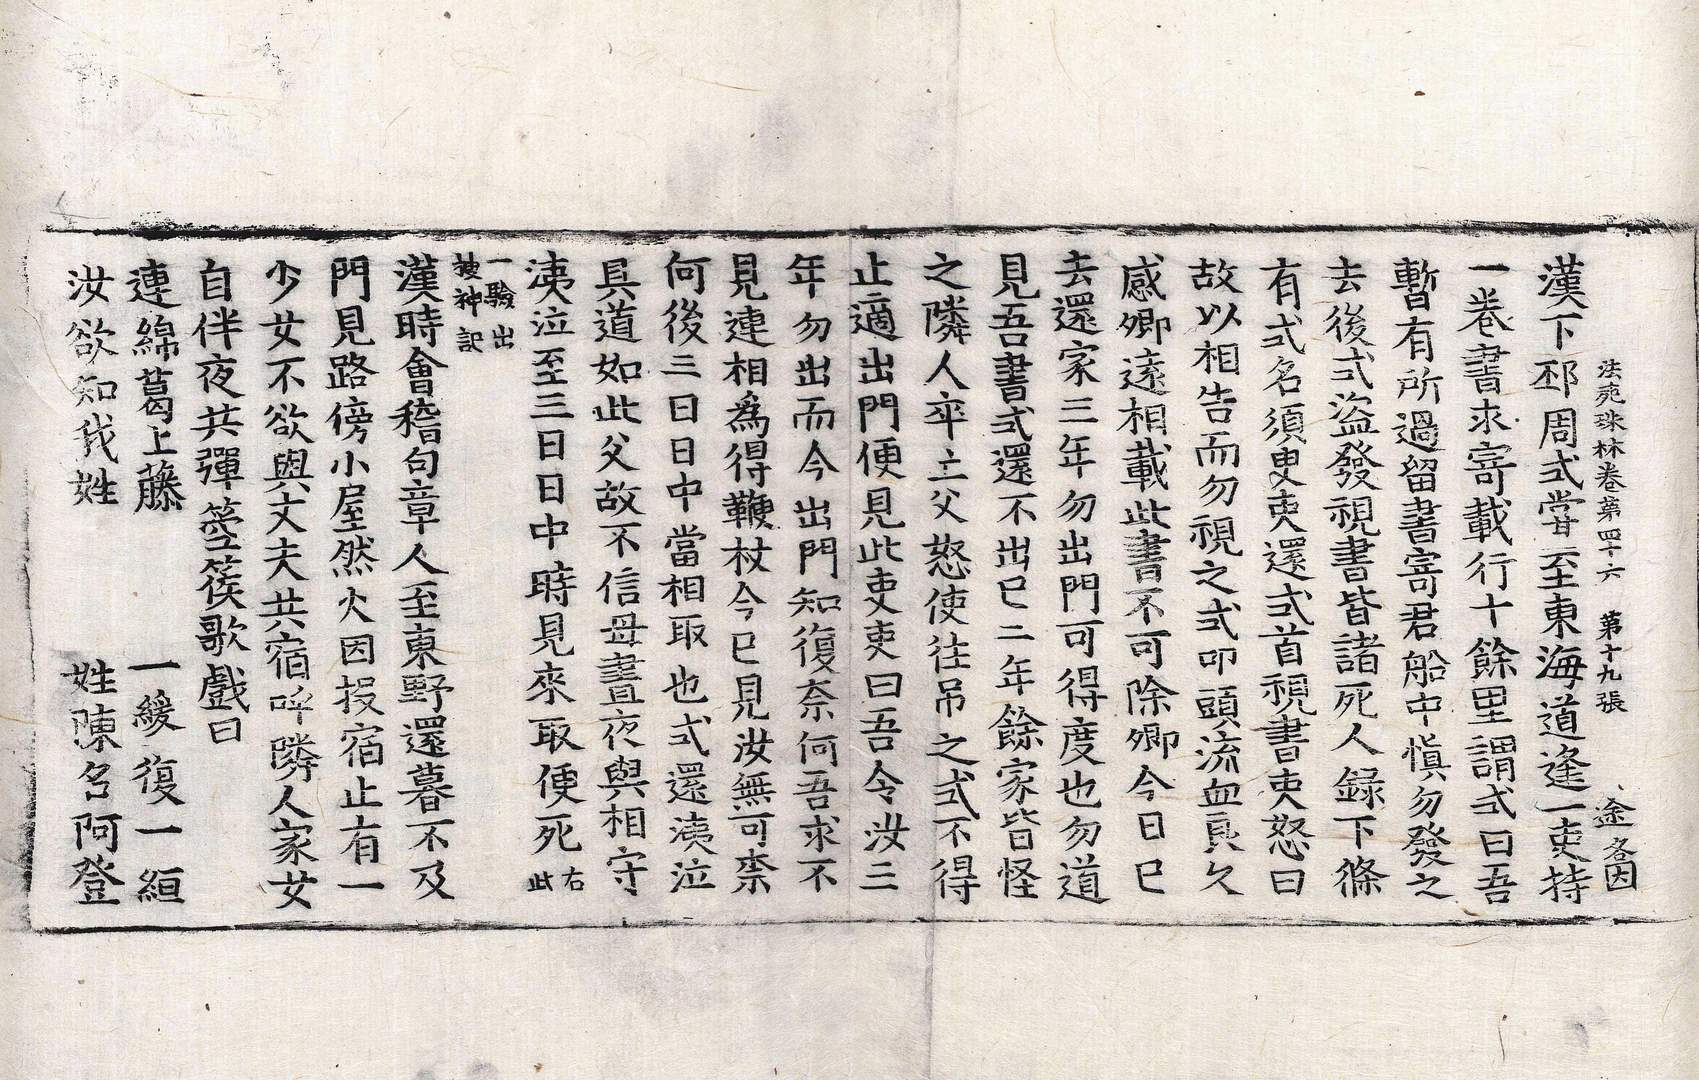 法苑珠林卷第四十六 第十九張 途各因
漢下邳周式甞至東海道逢一吏持
一卷書求寄載行十餘里謂式曰吾
暫有所過留書寄君船中愼勿發之
去後式盜發視書皆諸死人録下條
有式名須臾吏還式首視書吏怒曰
故以相告而勿視之式叩頭流血良久
感卿遠相載此書不可除卿今日已
去還家三年勿出門可得度也勿道
見吾書式還不出已二年餘家皆怪
之隣人卒亡父怒使往吊之式不得
止適出門便見此吏吏曰吾令汝三
年勿出而今出門知復奈何吾求不
見連相爲得鞭杖今已見汝無可柰
何後三日日中當相取也式還洟泣
具道如此父故不信母晝夜與相守
洟泣至三日日中時見來取便死右此
一驗出搜神記
漢時會稽句章人至東野還暮不及
門見路傍小屋然火因投宿止有一
少女不欲與丈夫共宿呼隣人家女
自伴夜共彈箜篌歌戲曰
連綿葛上藤 一緩復一緪
汝欲知我姓 姓陳名阿登